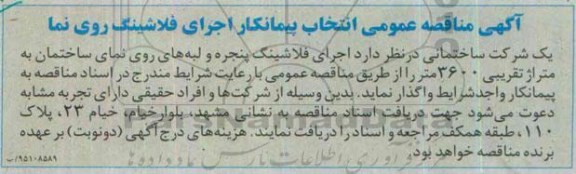 آگهی مناقصه عمومی انتخاب پیمانکار اجرای فلاشینگ روی نما
یک شرکت ساختمانی درنظر دارد اجرای فلاشینگ پنجره و لبه‌های روی نمای ساختمان به
متراژ تقریبی ۳۶۰۰ متر را از طریق مناقصه عمومی با رعایت شرایط مندرج در اسناد مناقصه به
پیمانکار واجد شرایط واگذار نماید. بدین وسیله از شرکت‌ها و افراد حقیقی دارای تجربه مشابه
دعوت می‌شود جهت دریافت اسناد مناقصه به نشانی مشهد، بلوار خیام، خیام ۲۳، پلاک
۱۱۰، طبقه همکف مراجعه و اسناد را دریافت نمایند. هزینه‌های درج آگهی (دونوبت) بر عهده
برنده مناقصه خواهد بود.
۹۵۱۰۸۵۸۹/ب